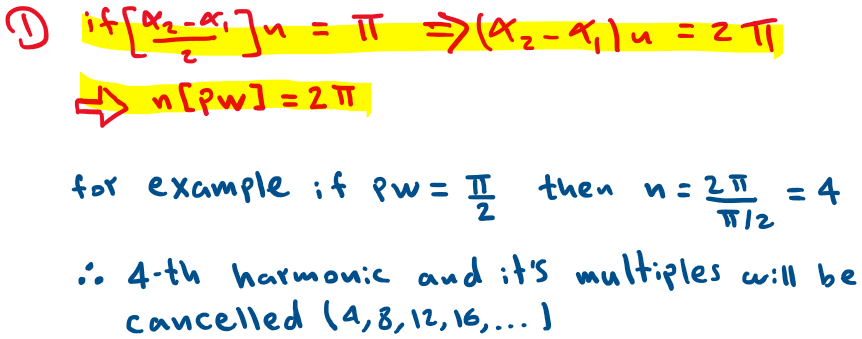 ① if [α₂-α₁/2]n = π ⇒ (α₂-α₁)n = 2π
⇒ n[pw] = 2π
for example if pw = π/2 then n = 2π/π/2 = 4
∴ 4-th harmonic and it's multiples will be
cancelled (4,8,12,16,...)